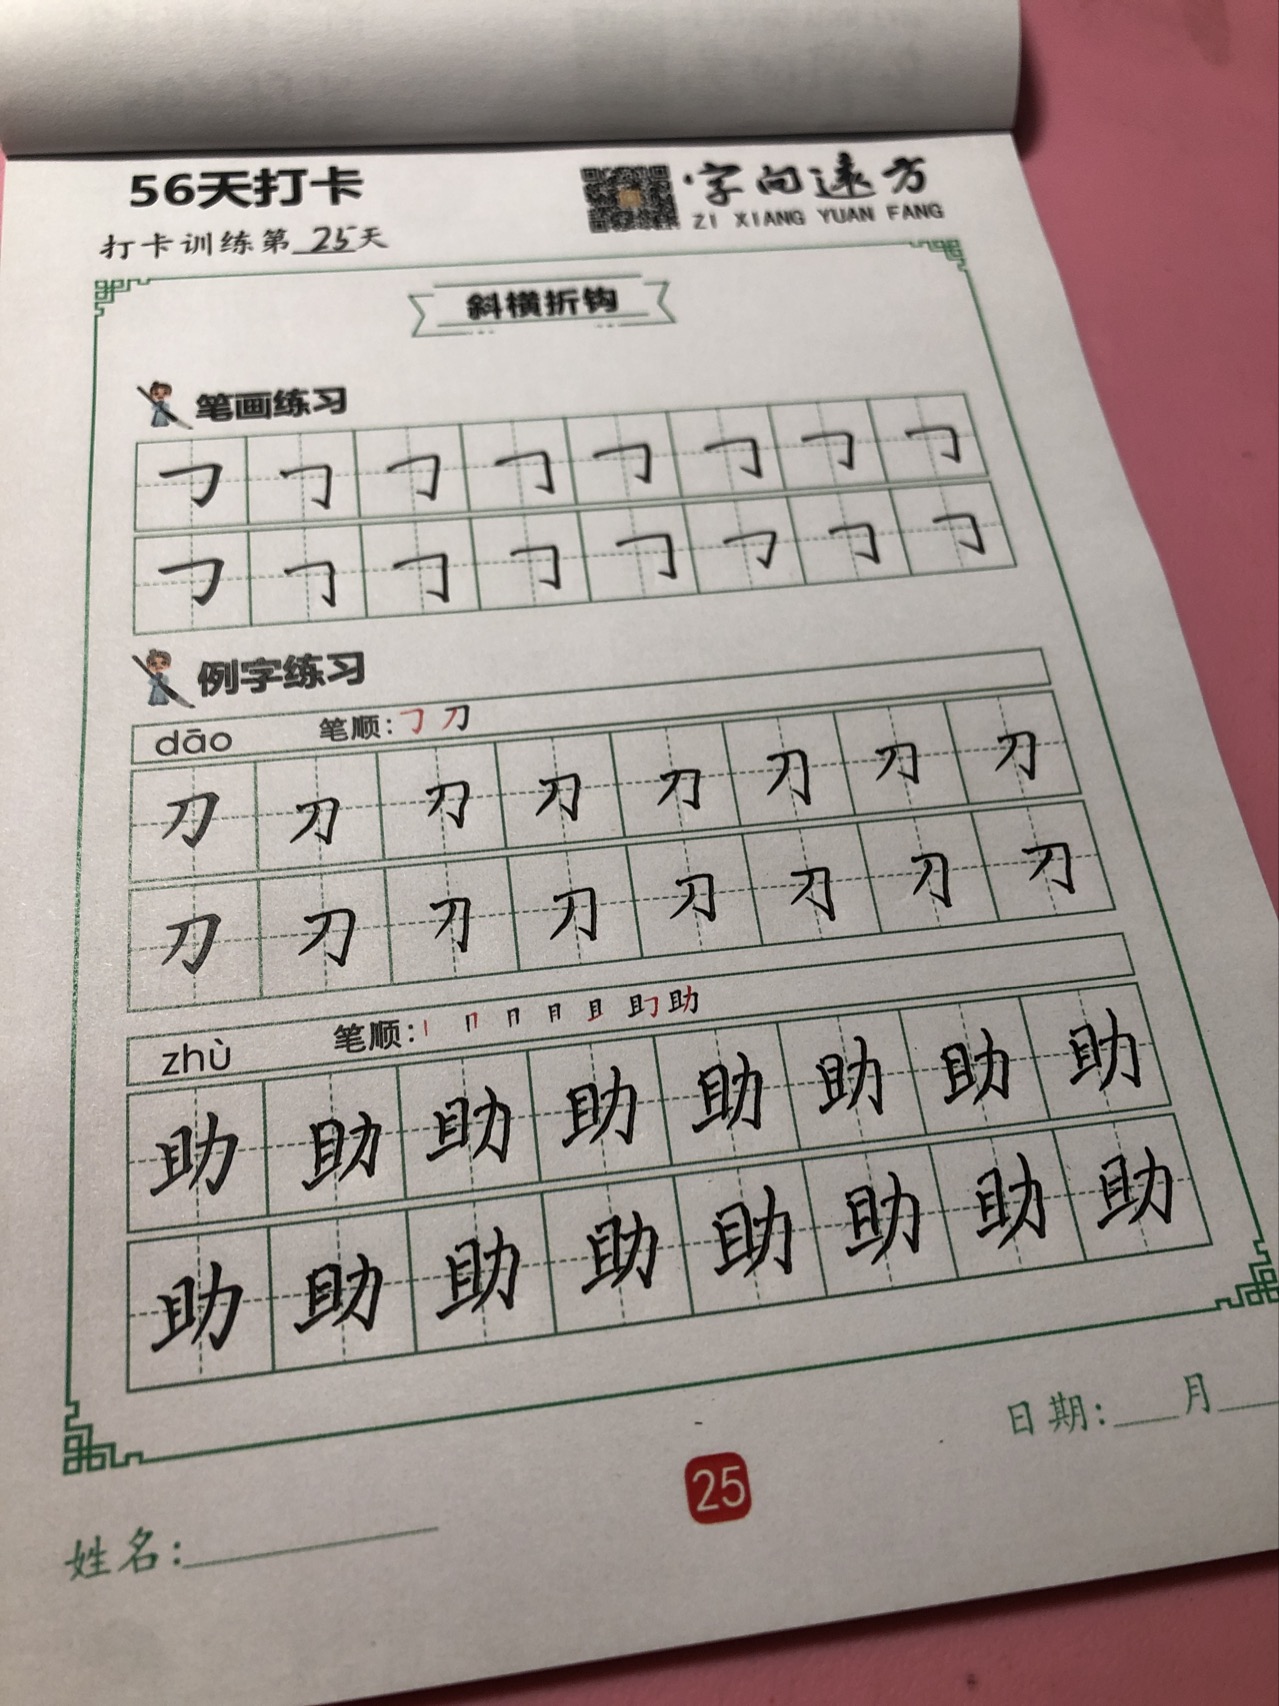 56天打卡
字向远方
ZI XIANG YUAN FANG
打卡训练第25天
斜横折钩
笔画练习
𠃌 𠃌 𠃌 𠃌 𠃌 𠃌 𠃌 𠃌
𠃌 𠃌 𠃌 𠃌 𠃌 𠃌 𠃌 𠃌
例字练习
dāo 笔顺: 𠃌 刀
刀 刀 刀 刀 刀 刀 刀 刀
刀 刀 刀 刀 刀 刀 刀 刀
zhù 笔顺: 丨 𠃍 冂 月 且 助 助
助 助 助 助 助 助 助 助
助 助 助 助 助 助 助 助
日期:___月___
25
姓名: